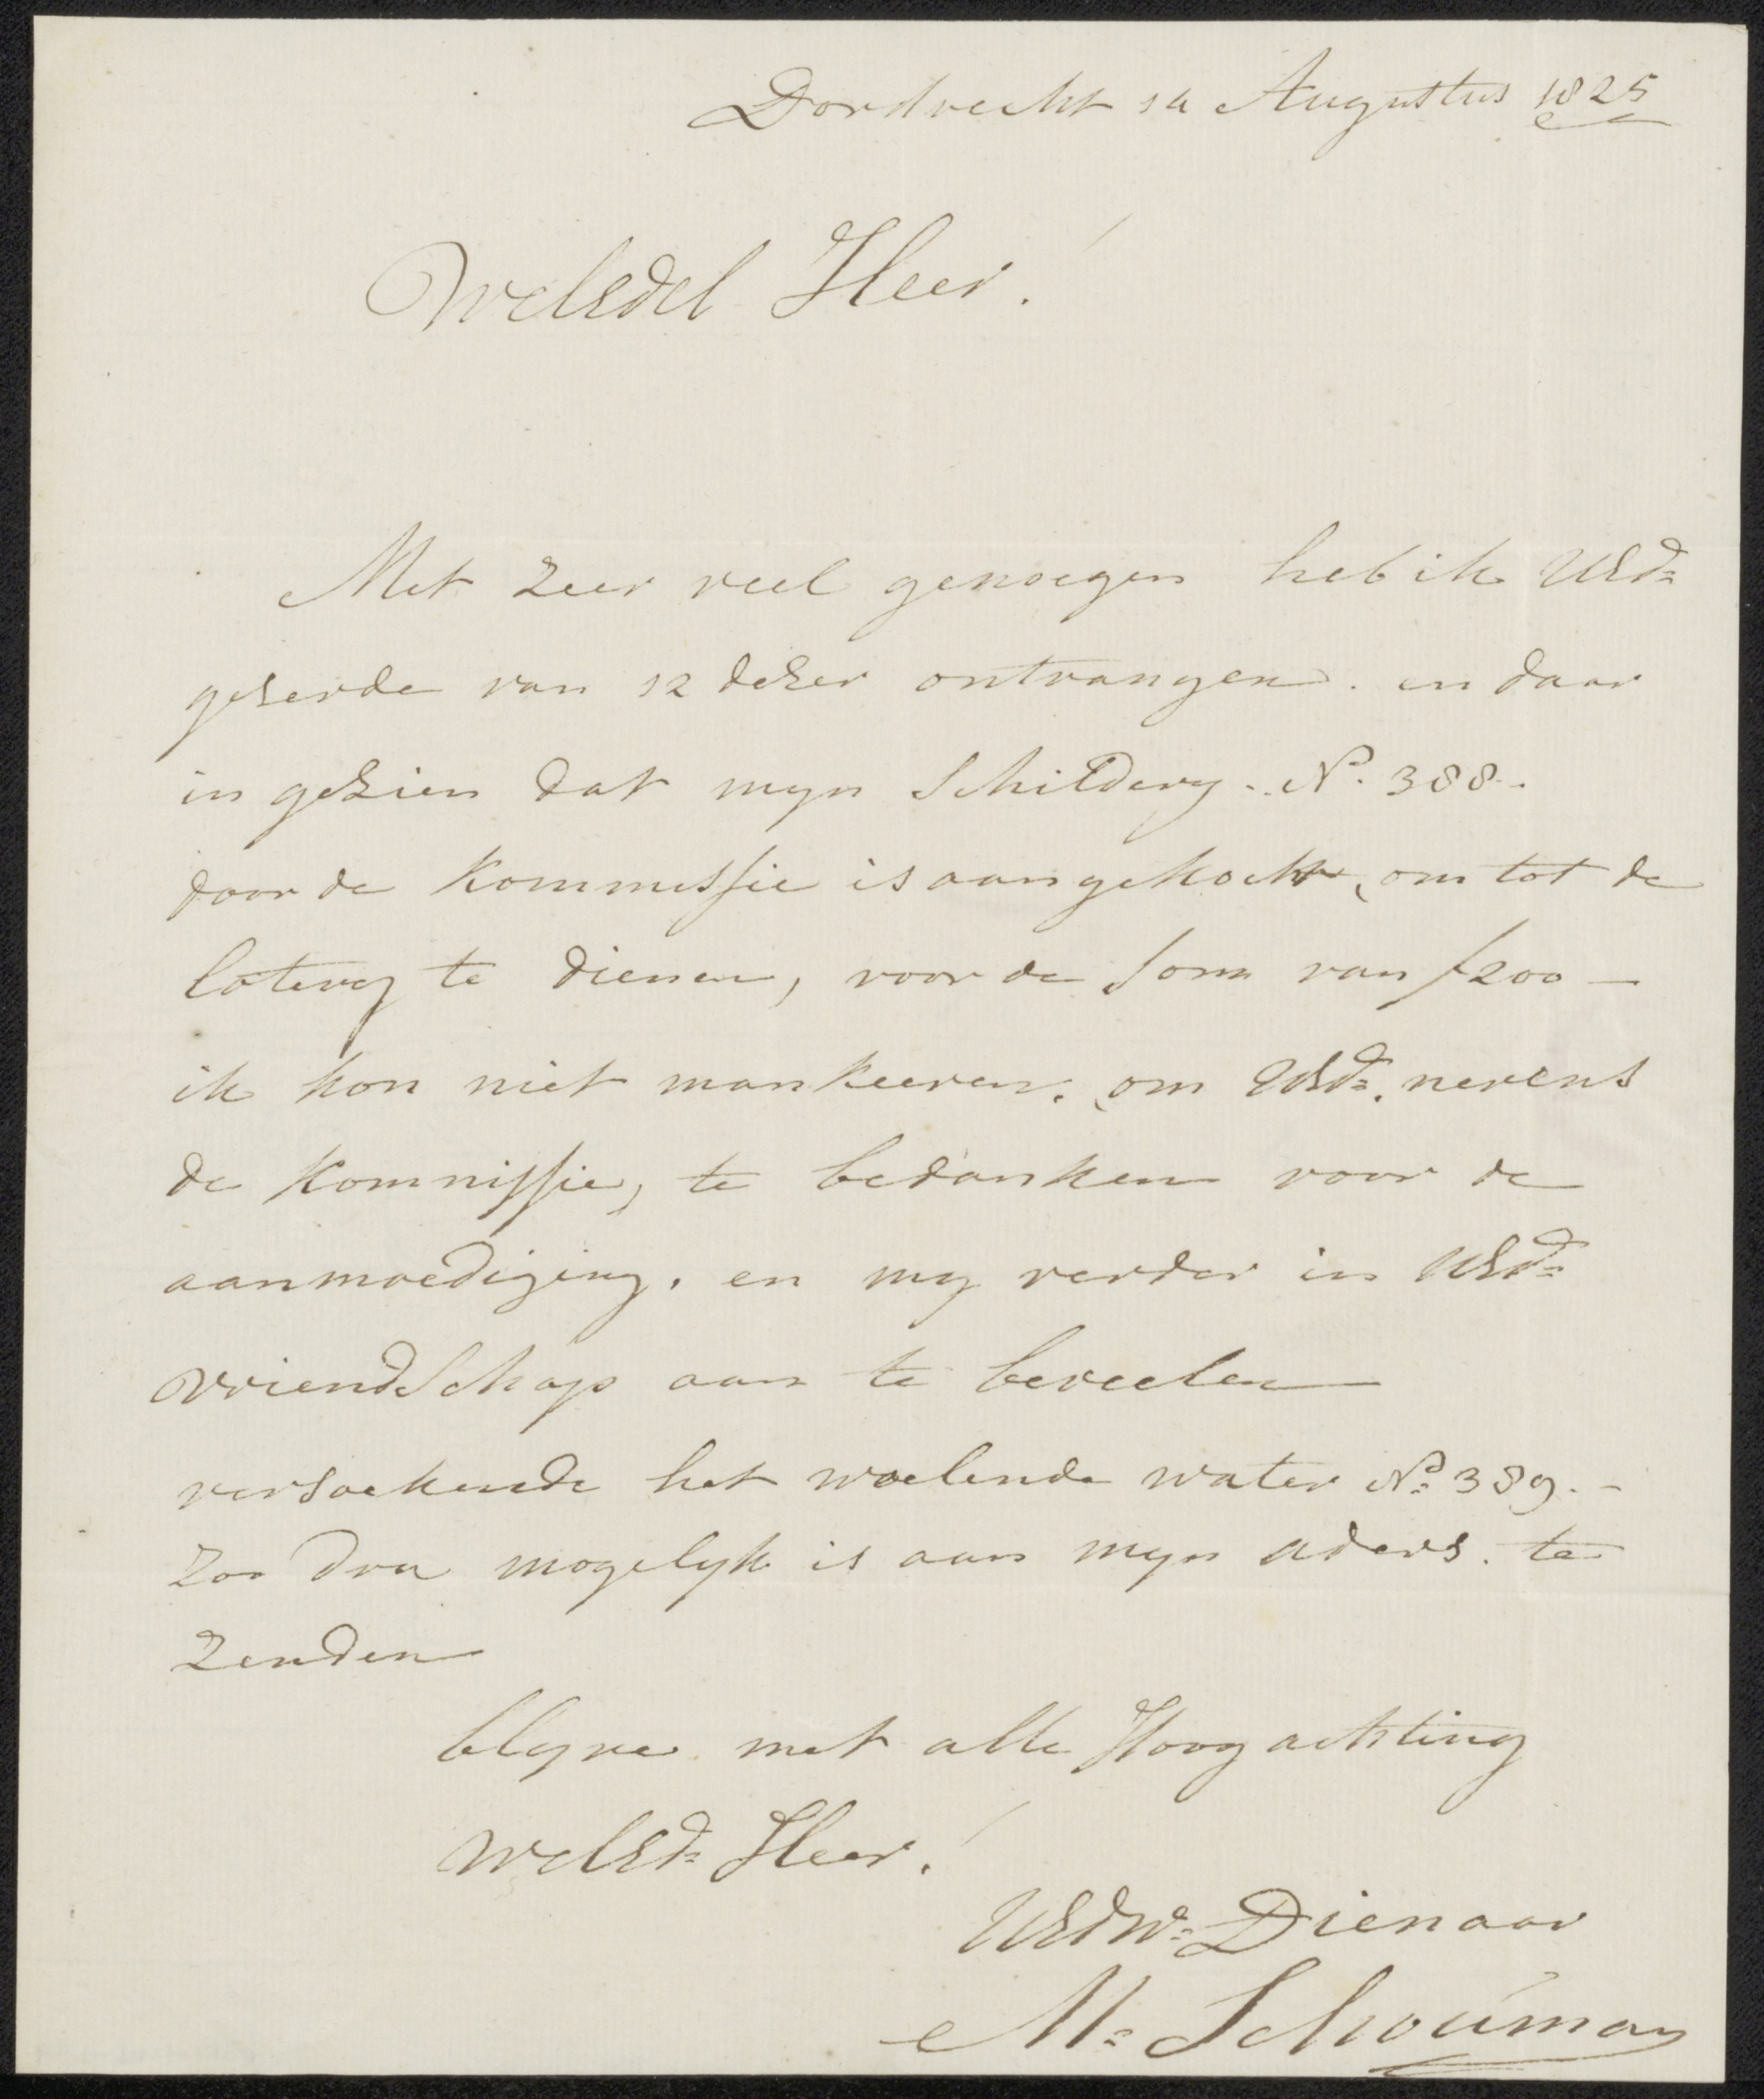 Dordrecht 14 Augustus 1825
WelEdel Heer!
Met zeer veel genoegen heb ik UEd=
geëerde van 12 dezer ontvangen. en daar
in gezien dat myn Schildery. N. 388.
door de Kommissie is aangekocht, om tot de
lotery te dienen, voor de som van f200 -
ik kon niet mankeeren. om UEd=. nevens
de Kommissie, te bedanken voor de
aanmoediging. en my verder in UEd=
vriendschap aan te beveelen
versoekende het woelende water No= 389. -
Zoo dra mogelyk is aan myn aders. te
Zenden
blyve met alle Hoogachting
WelEd= Heer!
UEdW= Dienaar
M= Schouman